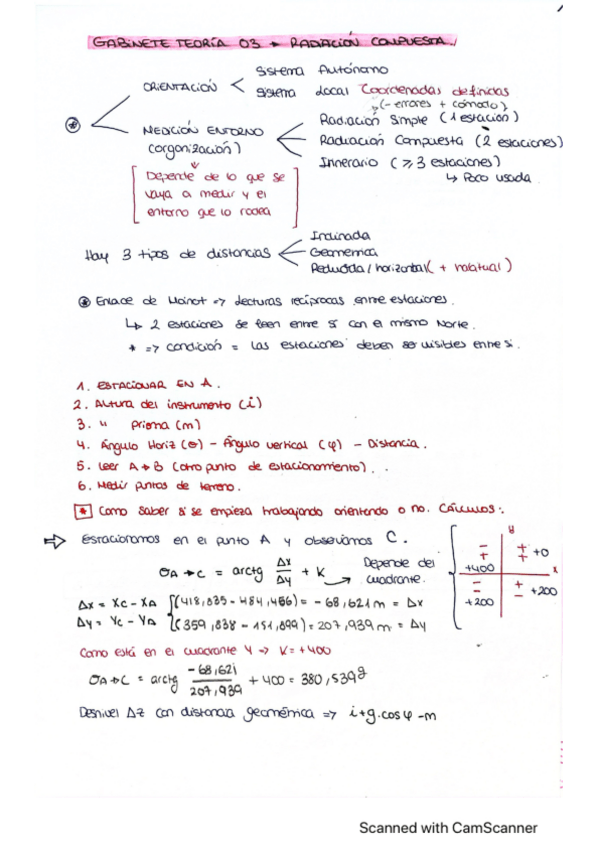 GABINETE TEORÍA 03 → RADIACIÓN COMPUESTA.
ORIENTACIÓN
Sistema Autónomo
Sistema Local Coordenadas definidas
(- errores + cómodo)
* MEDICIÓN ENTORNO
(organización)
Radiación Simple (1 estación)
Radiación Compuesta (2 estaciones)
Itinerario (≥ 3 estaciones)
↳ Poco usada
[Depende de lo que se
vaya a medir y el
entorno que lo rodea]
Hay 3 tipos de distancias
Inclinada
Geométrica
Reducida / horizontal (+ natural)
* Enlace de Moinot => lecturas recíprocas entre estaciones.
↳ 2 estaciones se leen entre sí con el mismo Norte.
* => condición = las estaciones deben ser visibles entre si.
1. ESTACIONAR EN A.
2. Altura del instrumento (i)
3. " Prisma (m)
4. Ángulo Horiz (θ) - Ángulo vertical (φ) - Distancia.
5. Leer A → B (otro punto de estacionamiento).
6. Medir puntos de terreno.
* Como saber si se empieza trabajando orientando o no. CÁLCULOS:
⇒ Estacionamos en el punto A y observamos C.
θA→C = arctg Δx/Δy + K → Depende del
cuadrante.
y
- + + + +0
+400 x
- - + - +200
+200
Δx = Xc - XA { (418,835 - 484,456) = -68,621 m = Δx
Δy = Yc - YA { (359,838 - 151,899) = 207,939 m = Δy
Como está en el cuadrante 4 => K = +400
θA→C = arctg -68,621/207,939 + 400 = 380,539g
Desnivel ΔZ con distancia geométrica => i+g.cosφ-m
Scanned with CamScanner